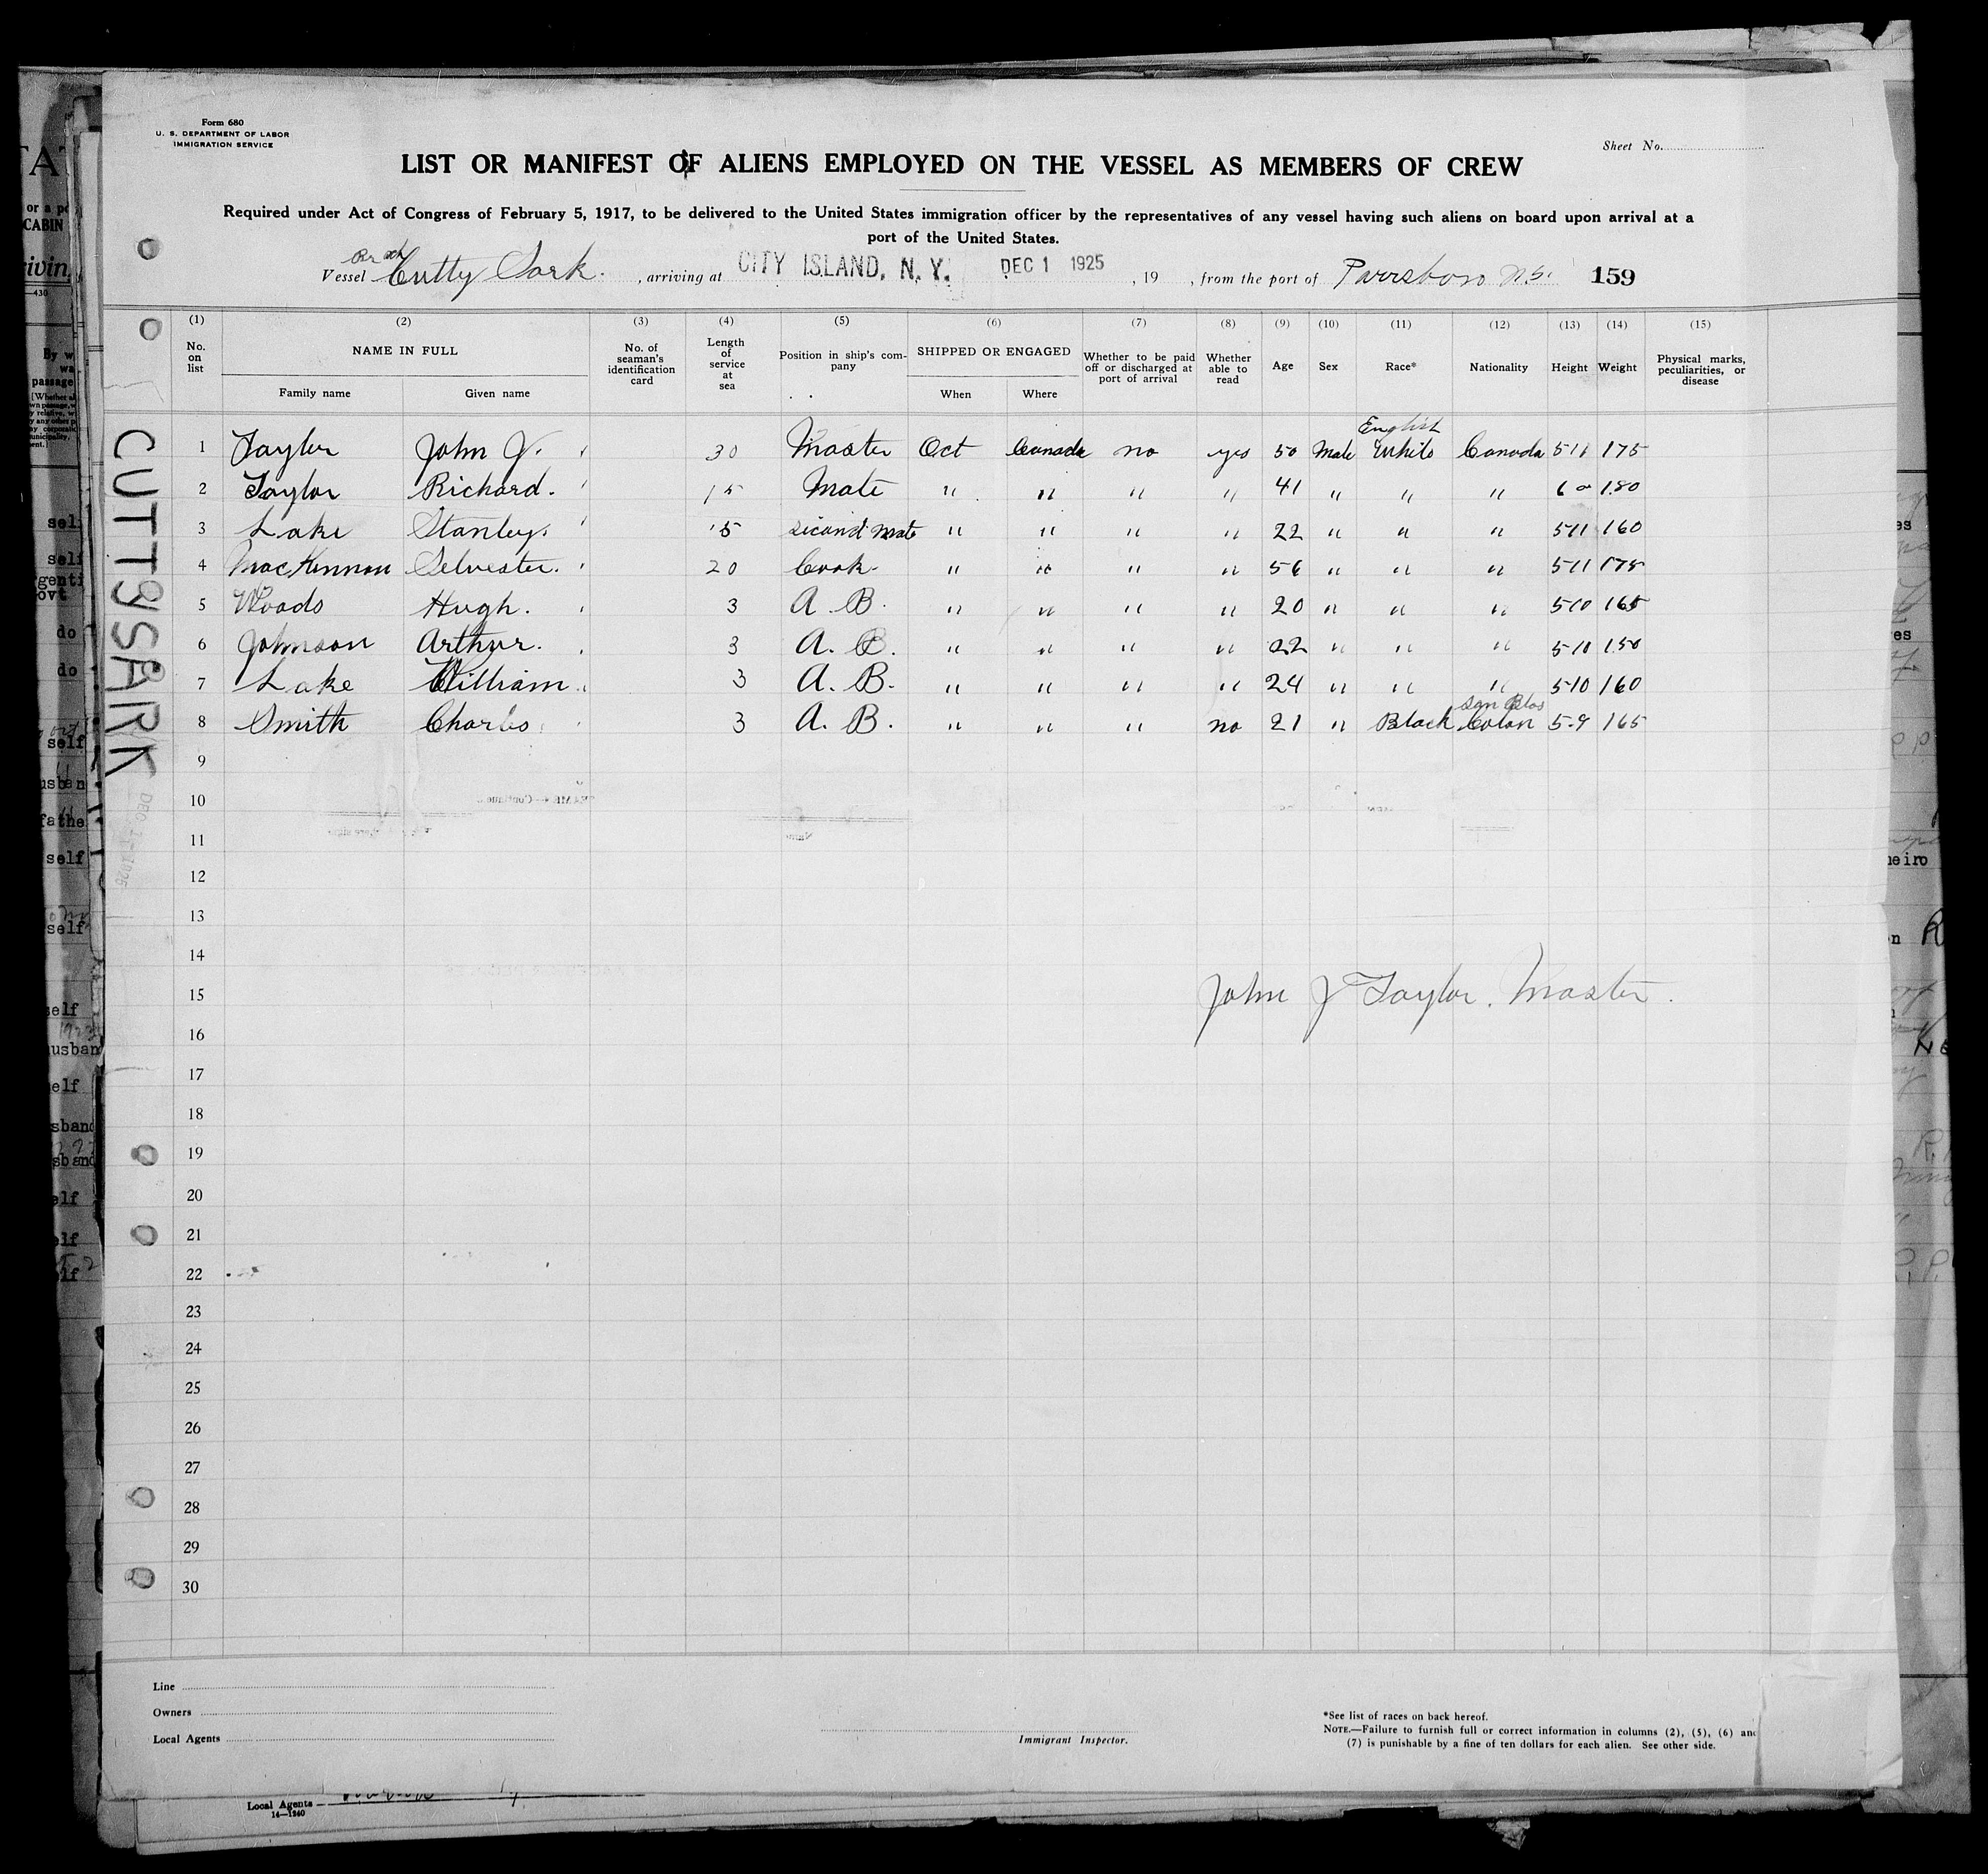 Form 680
U. S. DEPARTMENT OF LABOR
IMMIGRATION SERVICE
Sheet No.
LIST OR MANIFEST OF ALIENS EMPLOYED ON THE VESSEL AS MEMBERS OF CREW
Required under Act of Congress of February 5, 1917, to be delivered to the United States immigration officer by the representatives of any vessel having such aliens on board upon arrival at a
port of the United States.
Vessel Cutty Sark. , arriving at CITY ISLAND, N. Y. DEC 1 1925 , 19 , from the port of Parrsboro N.S. 159
(1) (2) (3) (4) (5) (6) (7) (8) (9) (10) (11) (12) (13) (14) (15)
No. on list NAME IN FULL Family name Given name No. of seaman's identification card Length of service at sea Position in ship's company SHIPPED OR ENGAGED When Where Whether to be paid off or discharged at port of arrival Whether able to read Age Sex Race* Nationality Height Weight Physical marks, peculiarities, or disease
English
1 Taylor John J. 30 Master Oct Canada no yes 50 Male White Canada 5 11 175
2 Taylor Richard. 15 Mate " " " " 41 " " " 6 0 180
3 Lake Stanley. 15 Second Mate " " " " 22 " " " 5 11 160
4 MacKinnon Selvester. 20 Cook. " " " " 56 " " " 5 11 175
5 Woods Hugh. 3 A. B. " " " " 20 " " " 5 10 165
6 Johnson Arthur. 3 A. B. " " " " 22 " " " 5 10 150
7 Lake William. 3 A. B. " " " " 24 " " " 5 10 160
San Blas
8 Smith Charles 3 A. B. " " " no 21 " Black Colon 5-9 165
9
10
11
12
13
14
15
John J Taylor. Master.
16
17
18
19
20
21
22
23
24
25
26
27
28
29
30
CUTTY SARK
DEC 1-1925
Line
Owners
Local Agents
Immigrant Inspector.
*See list of races on back hereof.
NOTE.—Failure to furnish full or correct information in columns (2), (5), (6) and
(7) is punishable by a fine of ten dollars for each alien. See other side.
Local Agents
14—1240